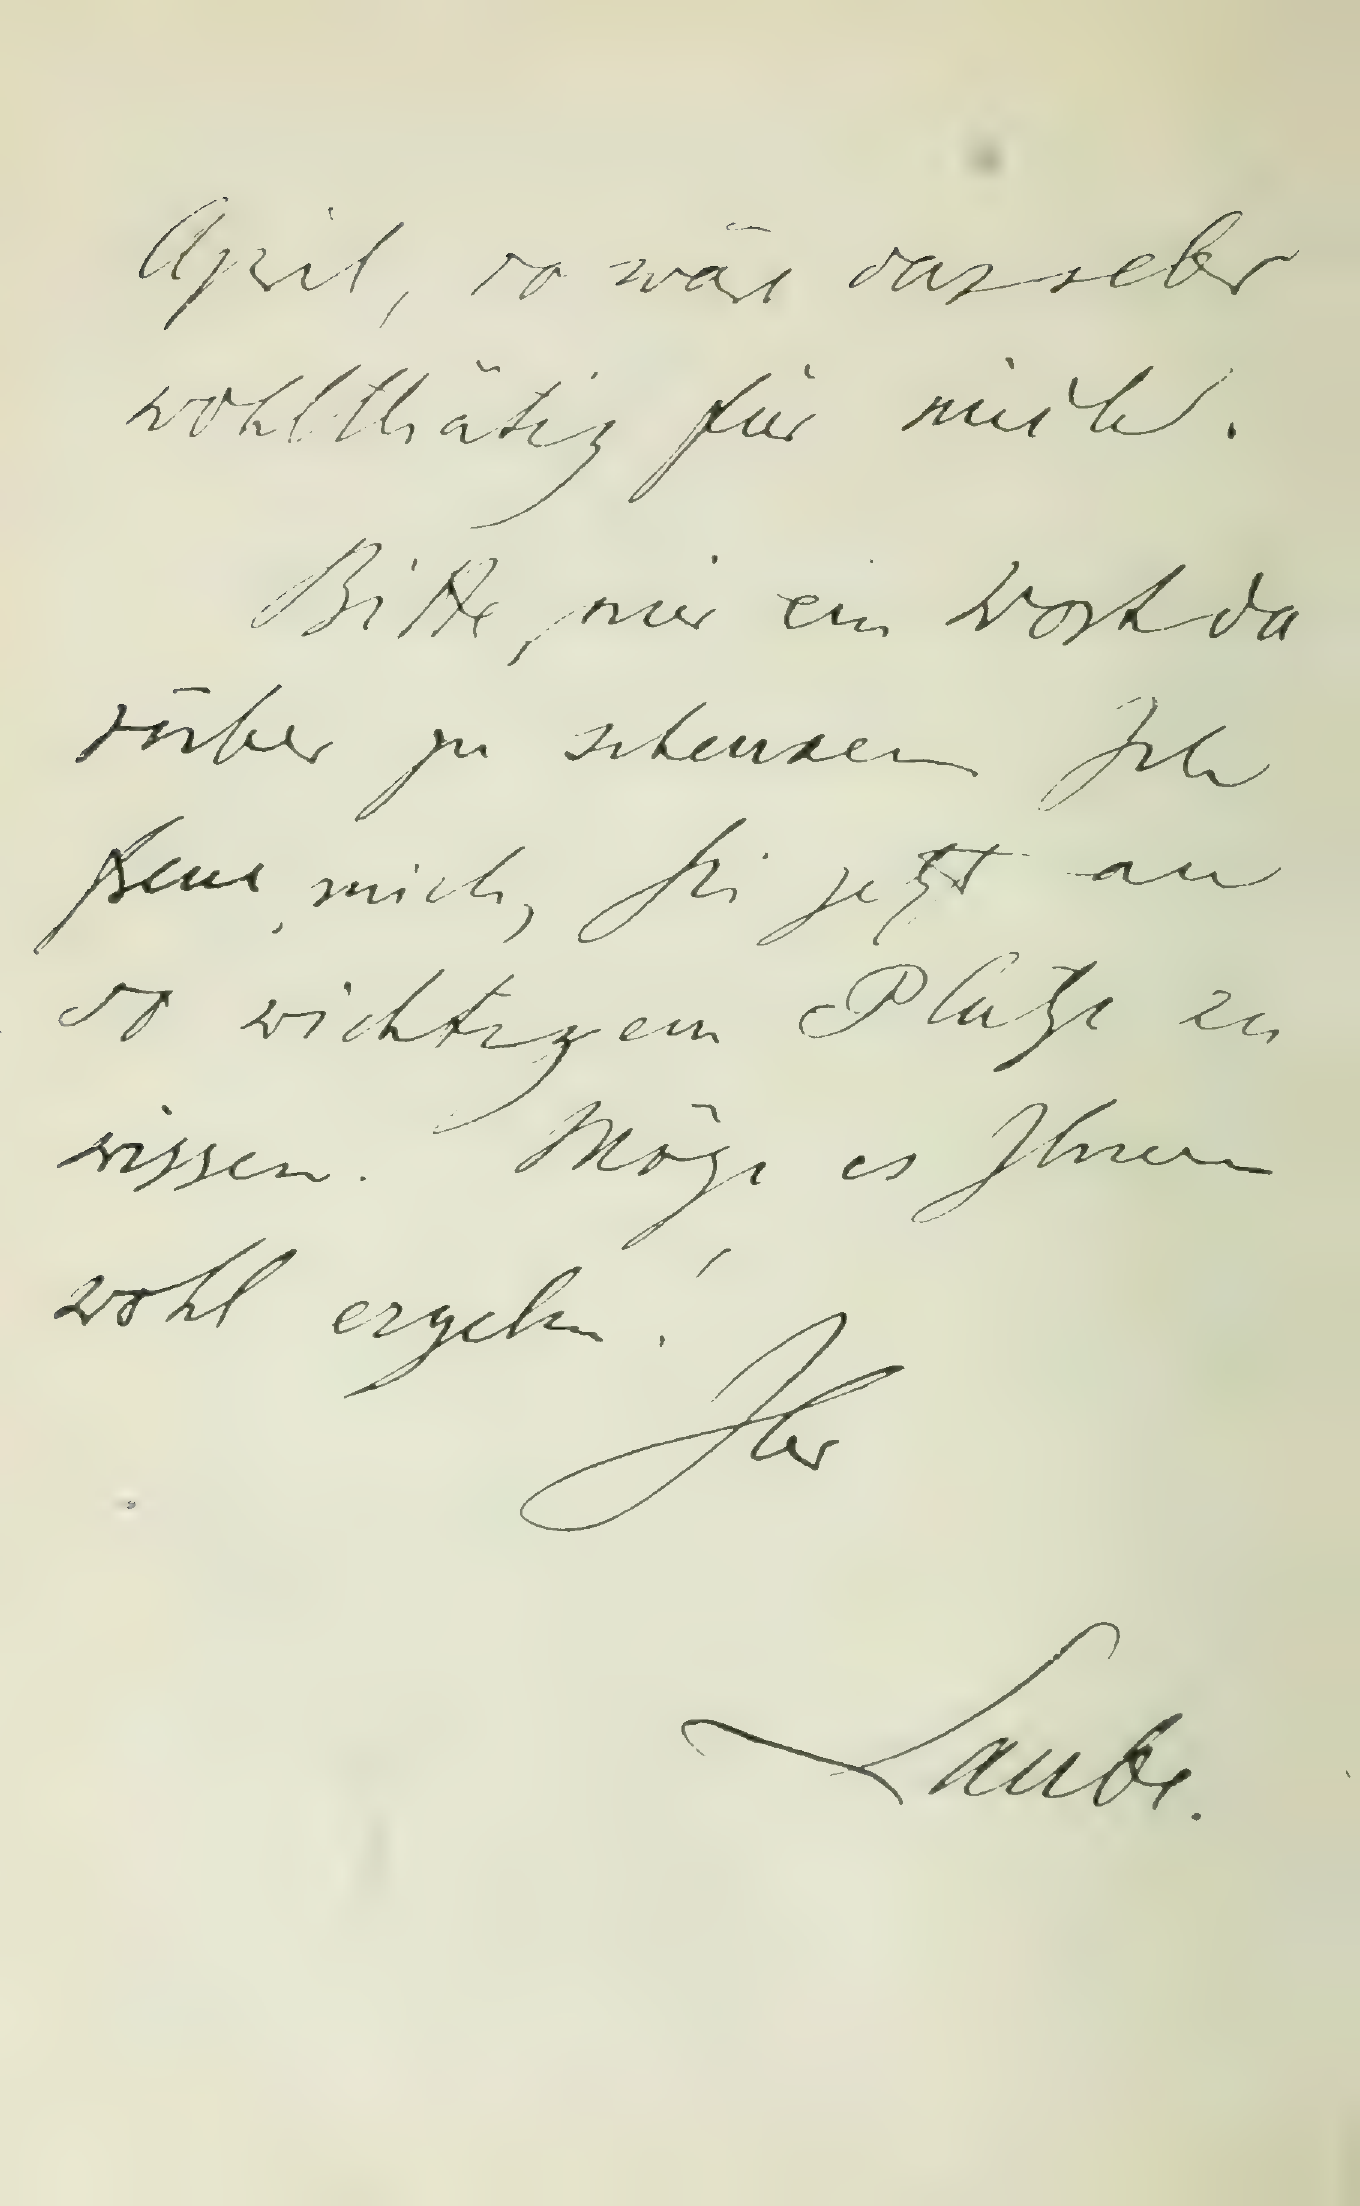 April, so wäre das sehr
wohlthätig für mich.
Bitte, mir ein Wort da
rüber zu schenken Ich
freue mich, Sie jetzt an
so wichtigem Platze zu
wissen. Möge es Ihnen
wohl ergehn!
Ihr
Laube.